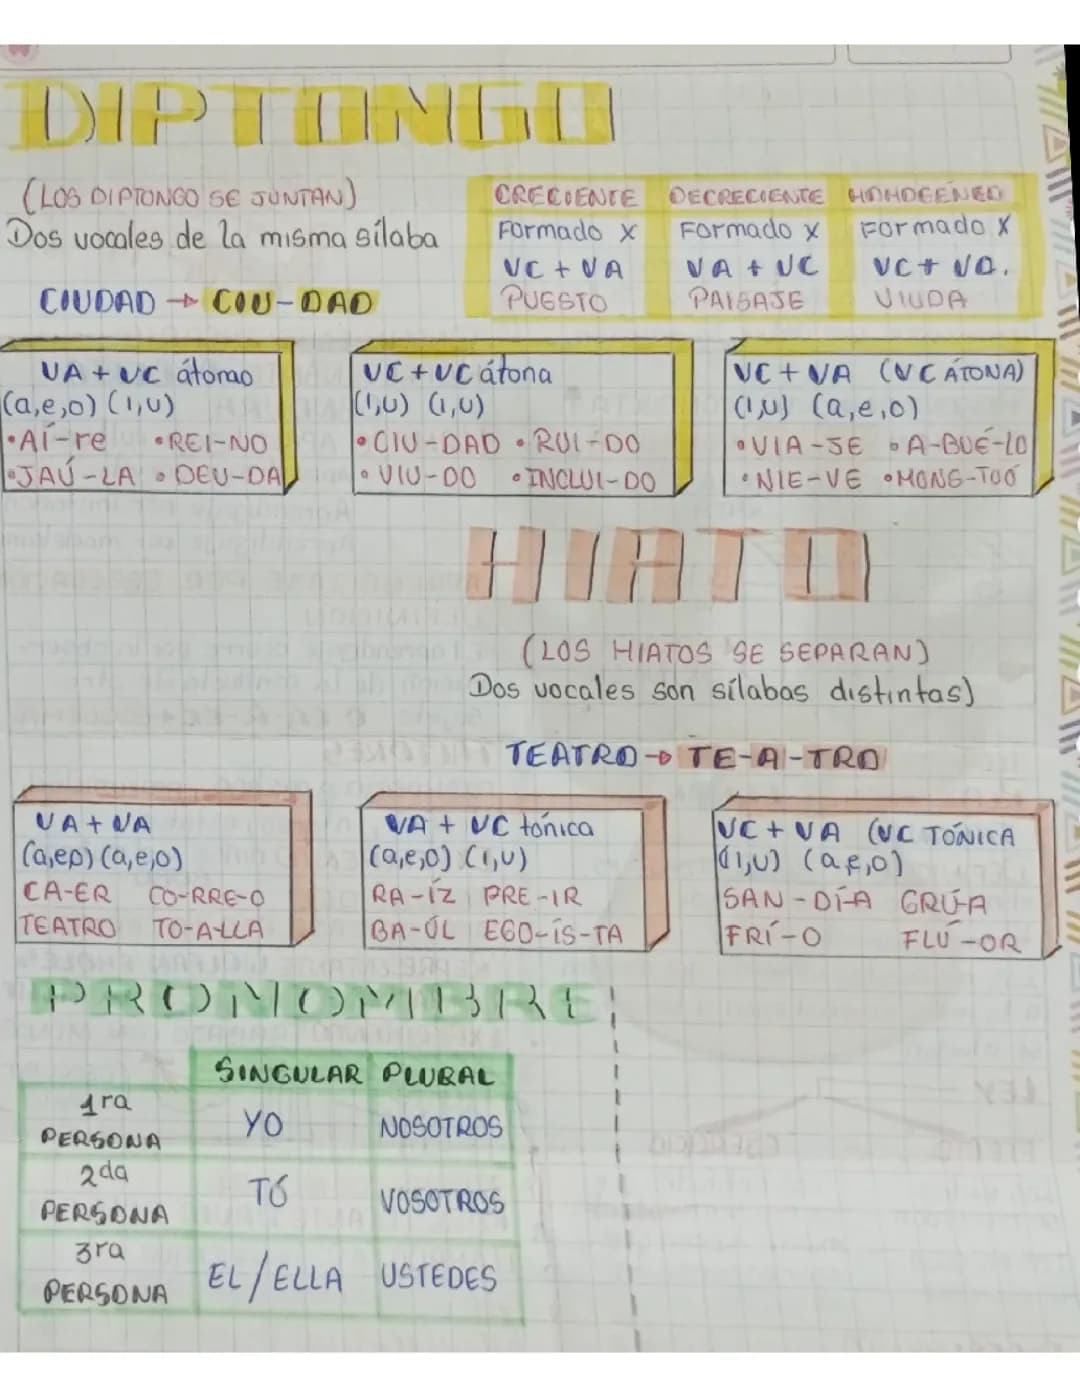 DIPTONGO
(LOS DIPTONGO SE JUNTAN)
Dos vocales de la misma sílaba
CIUDAD → CIU-DAD
CRECIENTE DECRECIENTE HOMOGENEO
Formado x Formado x Formado x
VC + VA VA + VC VC + VA.
PUESTO PAISAJE VIUDA
VA + VC átomao
(a,e,o) (i,u)
•AÍ-re •REI-NO
•JAÚ-LA •DEU-DA
VC + VC átona
(i,u) (i,u)
•CIU-DAD •RUI-DO
•VIU-DO •INCLUI-DO
VC + VA (VC ÁTONA)
(i,u) (a,e,o)
•VIA-JE •A-BUÉ-LO
•NIE-VE •MONS-TOÓ
HIATO
(LOS HIATOS SE SEPARAN)
Dos vocales son sílabas distintas)
TEATRO → TE-A-TRO
VA + VA
(a,e,o) (a,e,o)
CA-ER CO-RRE-O
TEATRO TO-A-LLA
VA + VC tónica
(a,e,o) (i,u)
RA-ÍZ PRE-IR
BA-ÚL EGO-ÍS-TA
VC + VA (VC TÓNICA
(i,u) (a,e,o)
SAN-DÍ-A GRÚ-A
FRÍ-O FLÚ-OR
PRONOMBRE
SINGULAR PLURAL
1ra PERSONA YO NOSOTROS
2da PERSONA TÚ VOSOTROS
3ra PERSONA EL/ELLA USTEDES